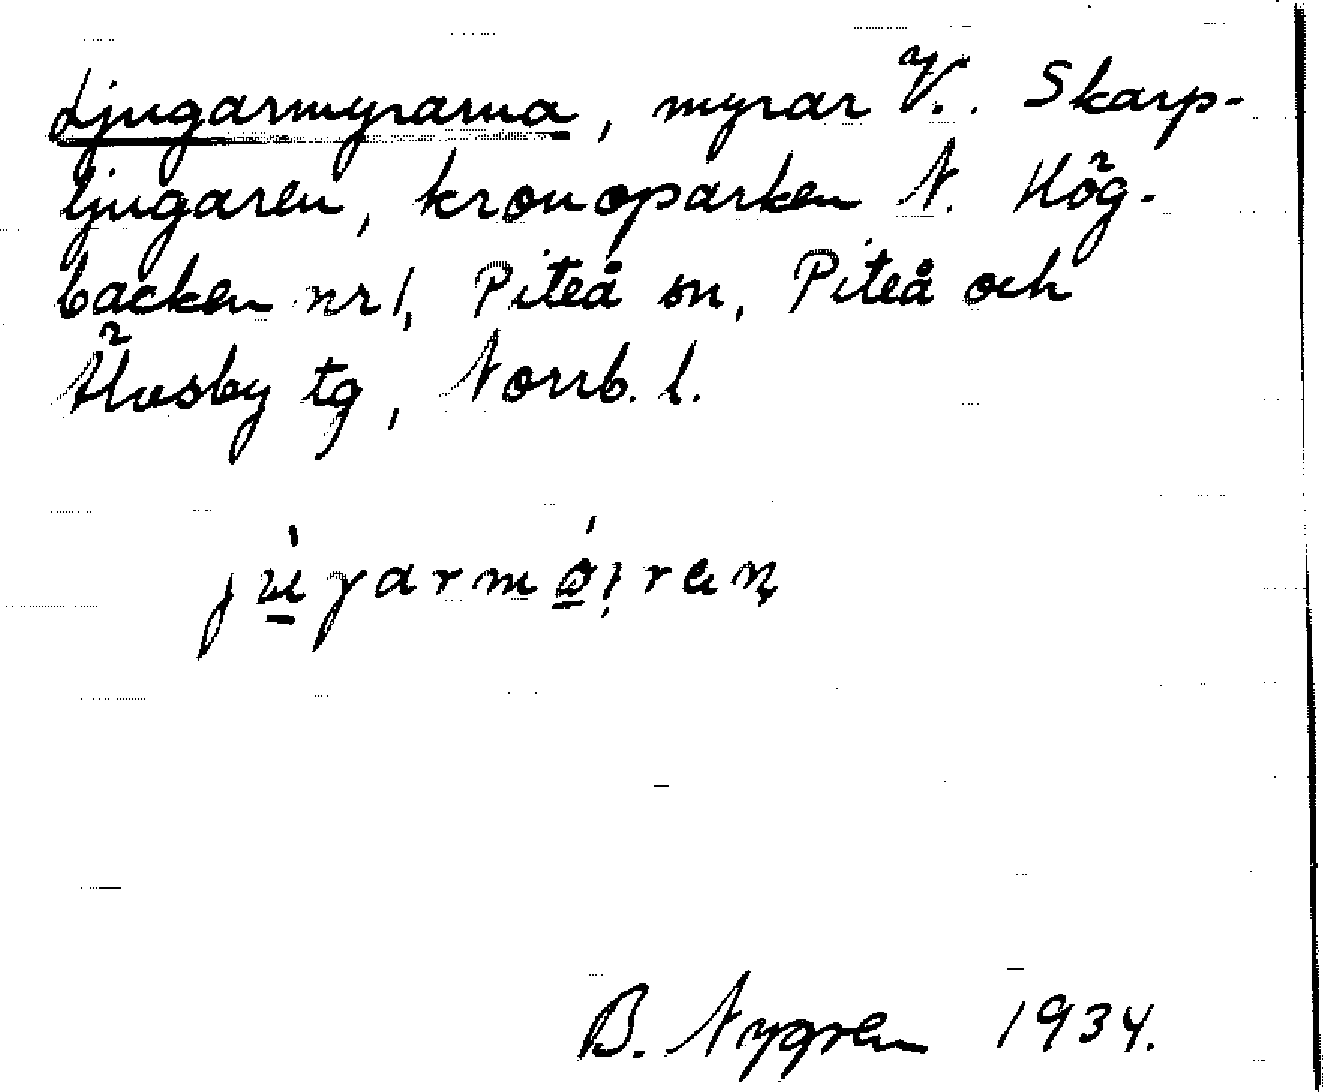 Ljugarmyrarna, myrar V. Skarp-
ljugaren, kronoparken N. Hög-
backen nr 1, Piteå sn, Piteå och
Älvsby tg, Norrb. l.
B. Nygren 1934.